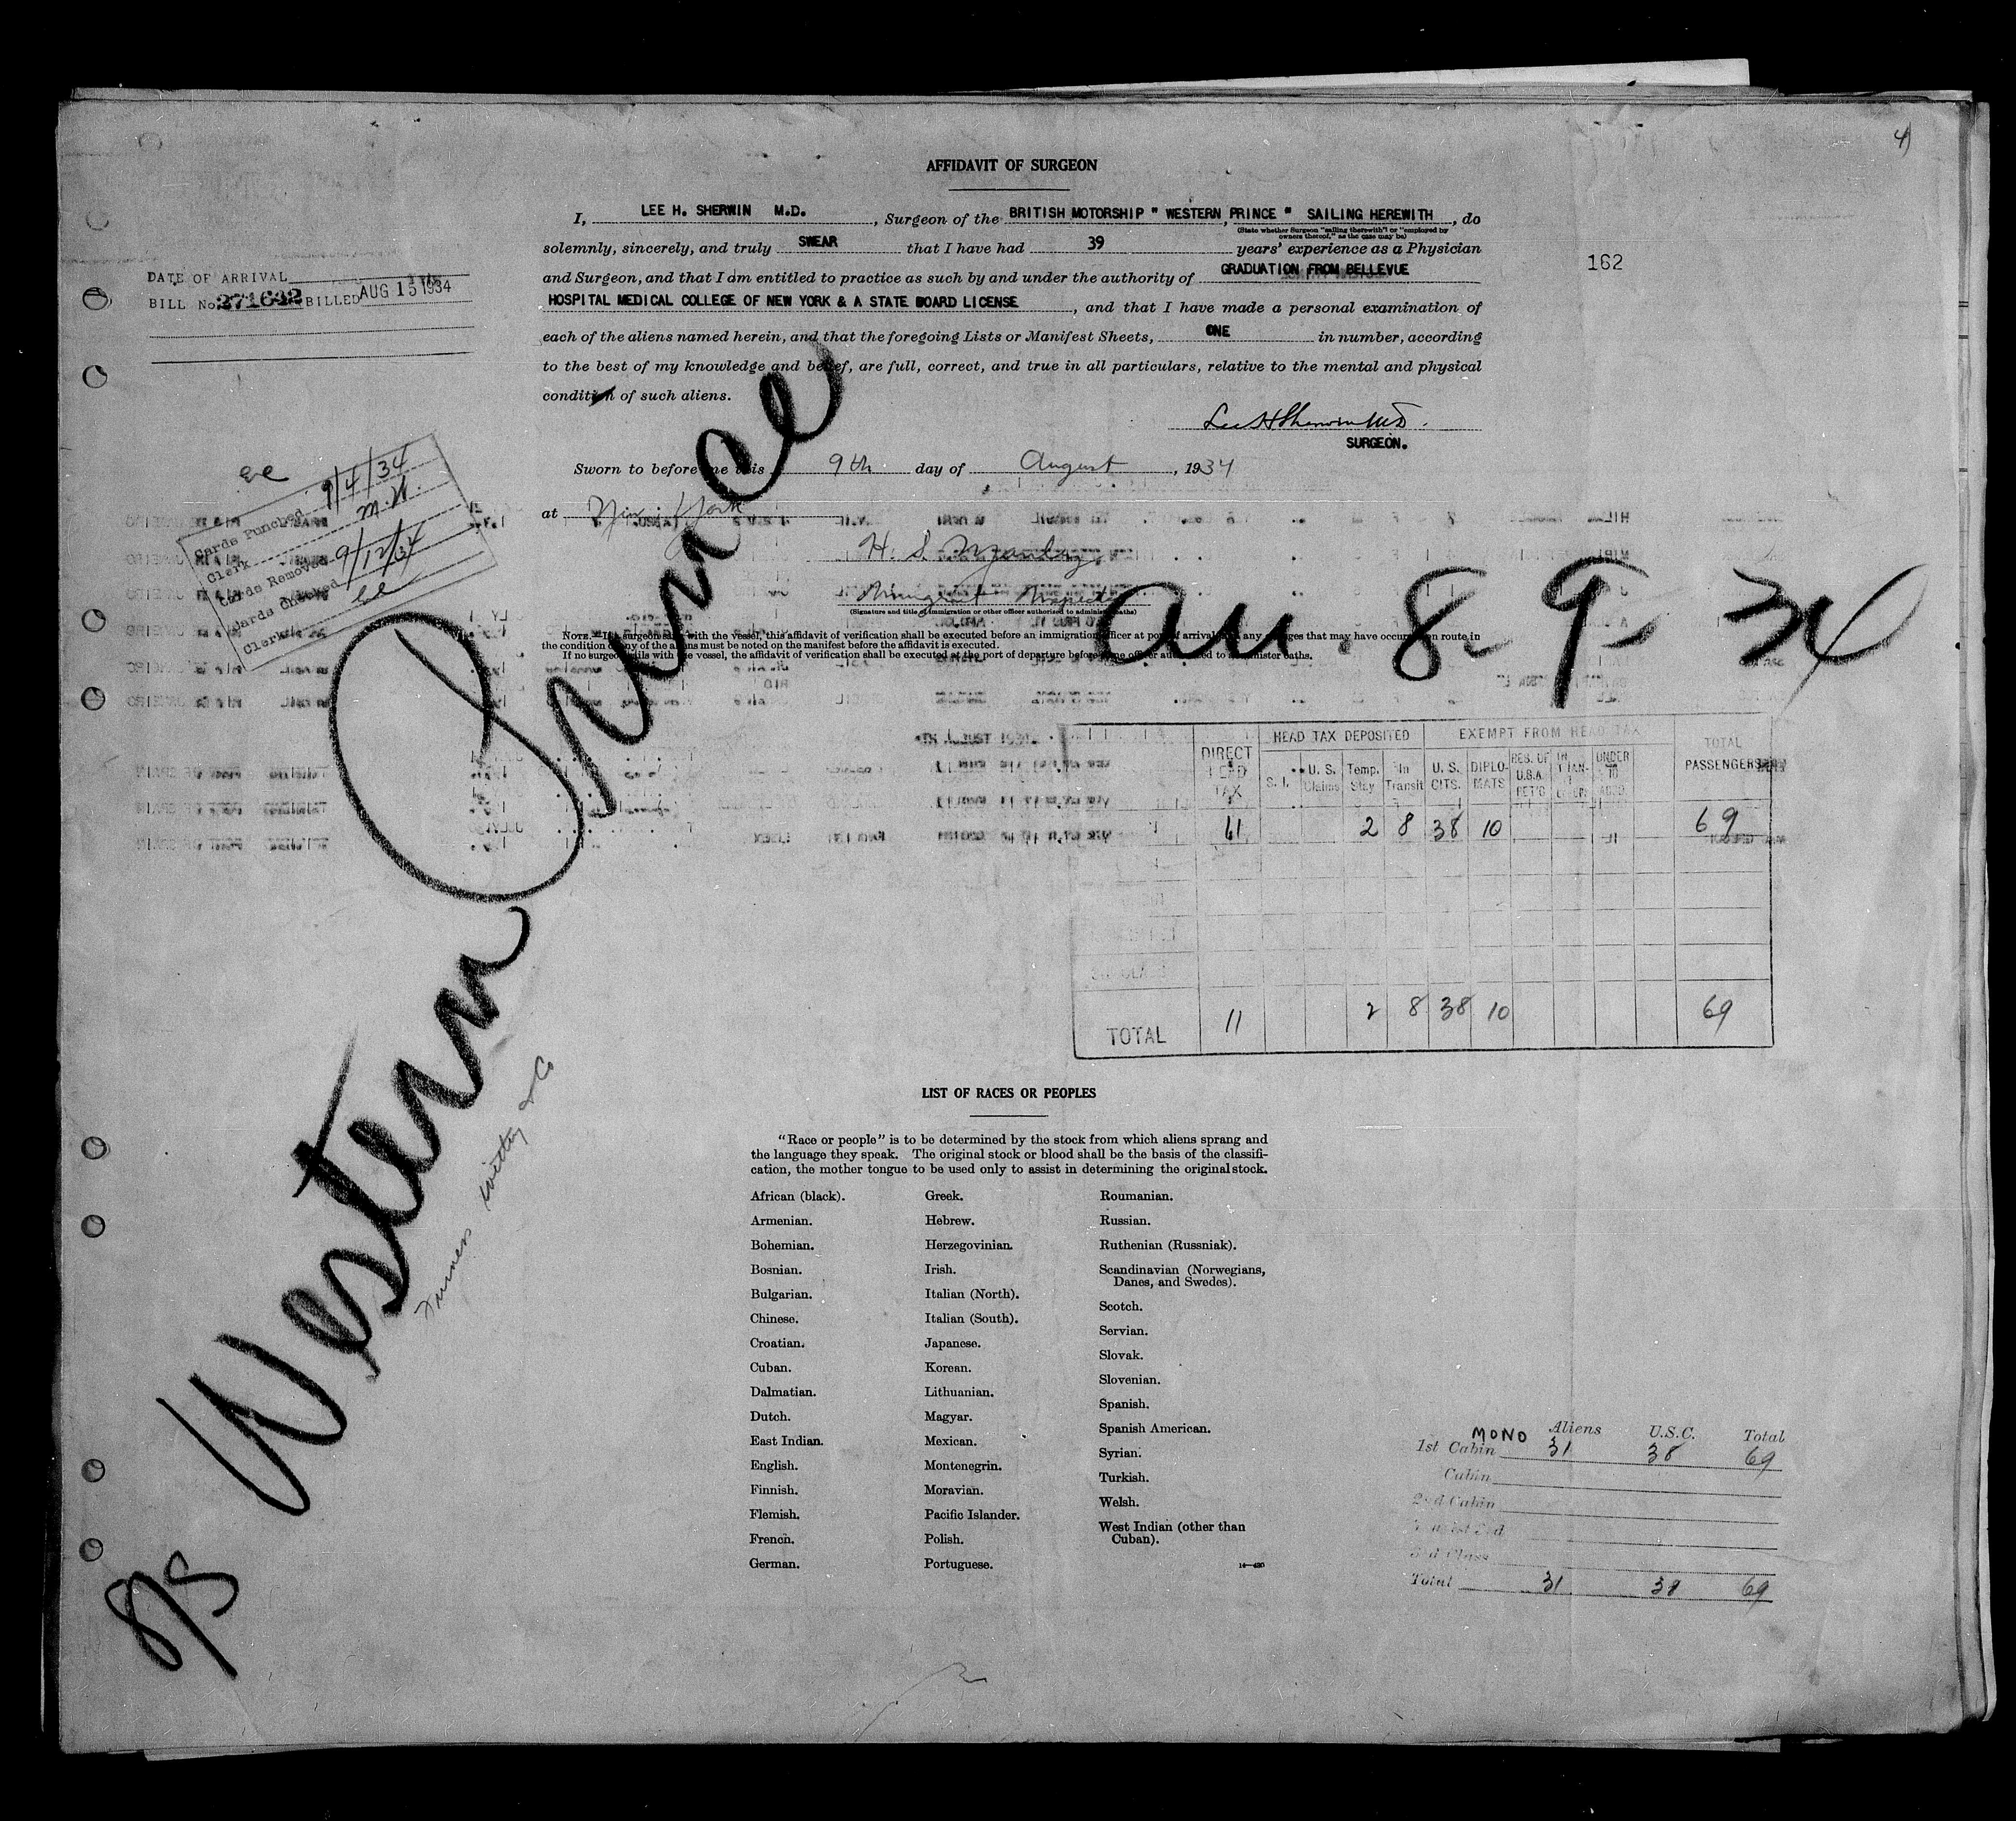 4
AFFIDAVIT OF SURGEON
I, LEE H. SHERWIN M.D., Surgeon of the BRITISH MOTORSHIP " WESTERN PRINCE " SAILING HEREWITH, do
(State whether Surgeon "sailing therewith" or "employed by owners thereof," as the case may be)
solemnly, sincerely, and truly SWEAR that I have had 39 years' experience as a Physician
and Surgeon, and that I am entitled to practice as such by and under the authority of GRADUATION FROM BELLEVUE
HOSPITAL MEDICAL COLLEGE OF NEW YORK & A STATE BOARD LICENSE, and that I have made a personal examination of
each of the aliens named herein, and that the foregoing Lists or Manifest Sheets, ONE in number, according
to the best of my knowledge and belief, are full, correct, and true in all particulars, relative to the mental and physical
condition of such aliens.
Lee H Sherwin MD.
SURGEON.
Sworn to before me this 9th day of August, 1934
at New York
H. S.
Immigrant Inspector
(Signature and title of immigration or other officer authorized to administer oaths)
NOTE.—If a surgeon sails with the vessel, this affidavit of verification shall be executed before an immigration officer at port of arrival, and any changes that may have occurred en route in
the condition of any of the aliens must be noted on the manifest before the affidavit is executed.
If no surgeon sails with the vessel, the affidavit of verification shall be executed at the port of departure before some officer authorized to administer oaths.
162
DATE OF ARRIVAL
BILL No. 271642 BILLED AUG 15 1934
ee
Cards Punched 9/4/34
Clerk M.W.
Cards Removed
Cards Checked 9/12/34
Clerk ee
Western Prince
Furness Withy & Co
S/S
au. 8-9-34
DIRECT HEAD TAX
HEAD TAX DEPOSITED
EXEMPT FROM HEAD TAX
TOTAL PASSENGERS
S. I. U. S. Claims Temp. Stay In Transit U. S. CITS. DIPLOMATS RES. OF U.S.A. RET'D UNDER
11 2 8 38 10 69
TOTAL 11 2 8 38 10 69
LIST OF RACES OR PEOPLES
"Race or people" is to be determined by the stock from which aliens sprang and
the language they speak. The original stock or blood shall be the basis of the classifi-
cation, the mother tongue to be used only to assist in determining the original stock.
African (black).
Armenian.
Bohemian.
Bosnian.
Bulgarian.
Chinese.
Croatian.
Cuban.
Dalmatian.
Dutch.
East Indian.
English.
Finnish.
Flemish.
French.
German.
Greek.
Hebrew.
Herzegovinian.
Irish.
Italian (North).
Italian (South).
Japanese.
Korean.
Lithuanian.
Magyar.
Mexican.
Montenegrin.
Moravian.
Pacific Islander.
Polish.
Portuguese.
Roumanian.
Russian.
Ruthenian (Russniak).
Scandinavian (Norwegians,
Danes, and Swedes).
Scotch.
Servian.
Slovak.
Slovenian.
Spanish.
Spanish American.
Syrian.
Turkish.
Welsh.
West Indian (other than
Cuban).
14—430
MONO Aliens U.S.C. Total
1st Cabin 31 38 69
Cabin
2nd Cabin
Tourist 3rd
3rd Class
Total 31 38 69